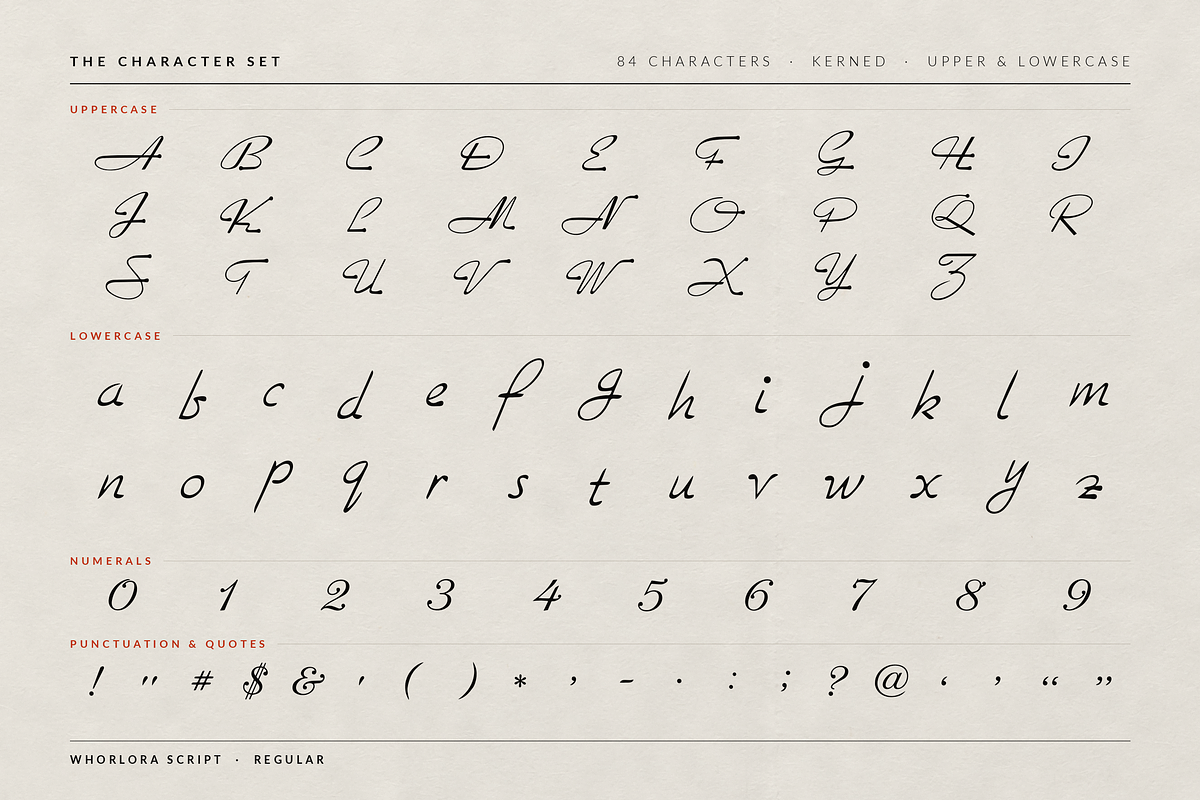 THE CHARACTER SET
84 CHARACTERS · KERNED · UPPER & LOWERCASE
UPPERCASE
A B C D E F G H I
J K L M N O P Q R
S T U V W X Y Z
LOWERCASE
a b c d e f g h i j k l m
n o p q r s t u v w x y z
NUMERALS
0 1 2 3 4 5 6 7 8 9
PUNCTUATION & QUOTES
! " # $ & ' ( ) * , - . : ; ? @ ‘ ’ “ ”
WHORLORA SCRIPT · REGULAR